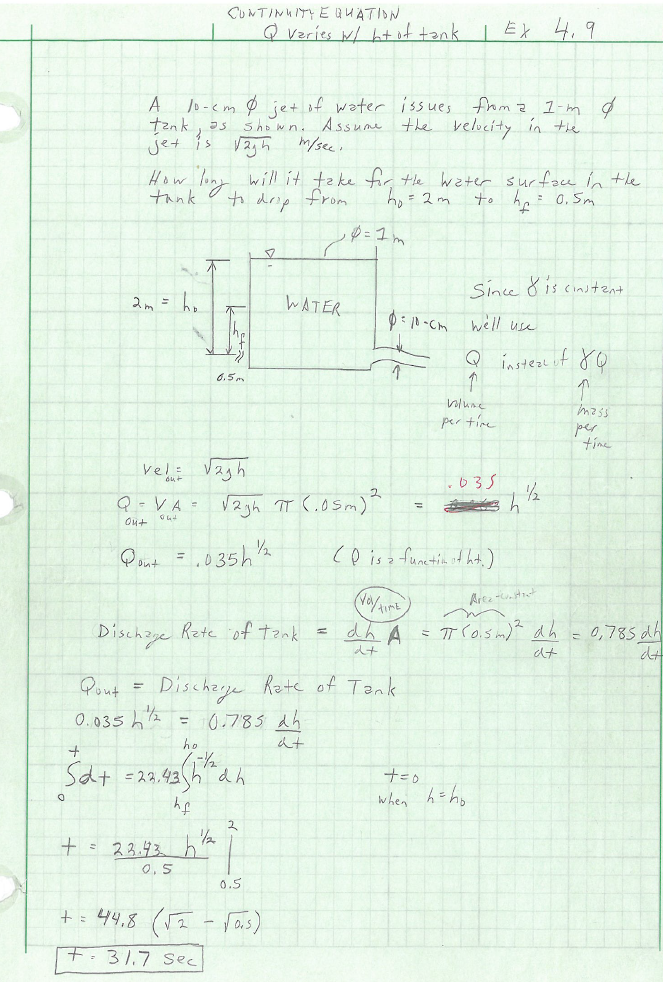 CONTINUITY EQUATION
Q varies w/ ht of tank | EX 4.9
A 10-cm ϕ jet of water issues from a 1-m ϕ
tank, as shown. Assume the velocity in the
jet is √2gh m/sec.
How long will it take for the water surface in the
tank to drop from h₀ = 2m to h_f = 0.5m
ϕ = 1m
2m = h₀
WATER
h_f
0.5m
ϕ = 10-cm
Since γ is constant
we'll use
Q instead of γQ
volume per time
mass per time
Vel out = √2gh
Q out = V out A = √2gh π (.05m)² = .035 h^1/2
Q out = .035 h^1/2 (Q is a function of ht.)
Vol/time
Area-constant
Discharge Rate of Tank = dh/dt A = π(0.5m)² dh/dt = 0.785 dh/dt
Qout = Discharge Rate of Tank
0.035 h^1/2 = 0.785 dh/dt
∫₀^t dt = 22.43 ∫_hf^h₀ h^-1/2 dh
t=0
when h=h₀
t = 22.43 h^1/2 / 0.5 |_0.5^2
t = 44.8 (√2 - √0.5)
t = 31.7 sec